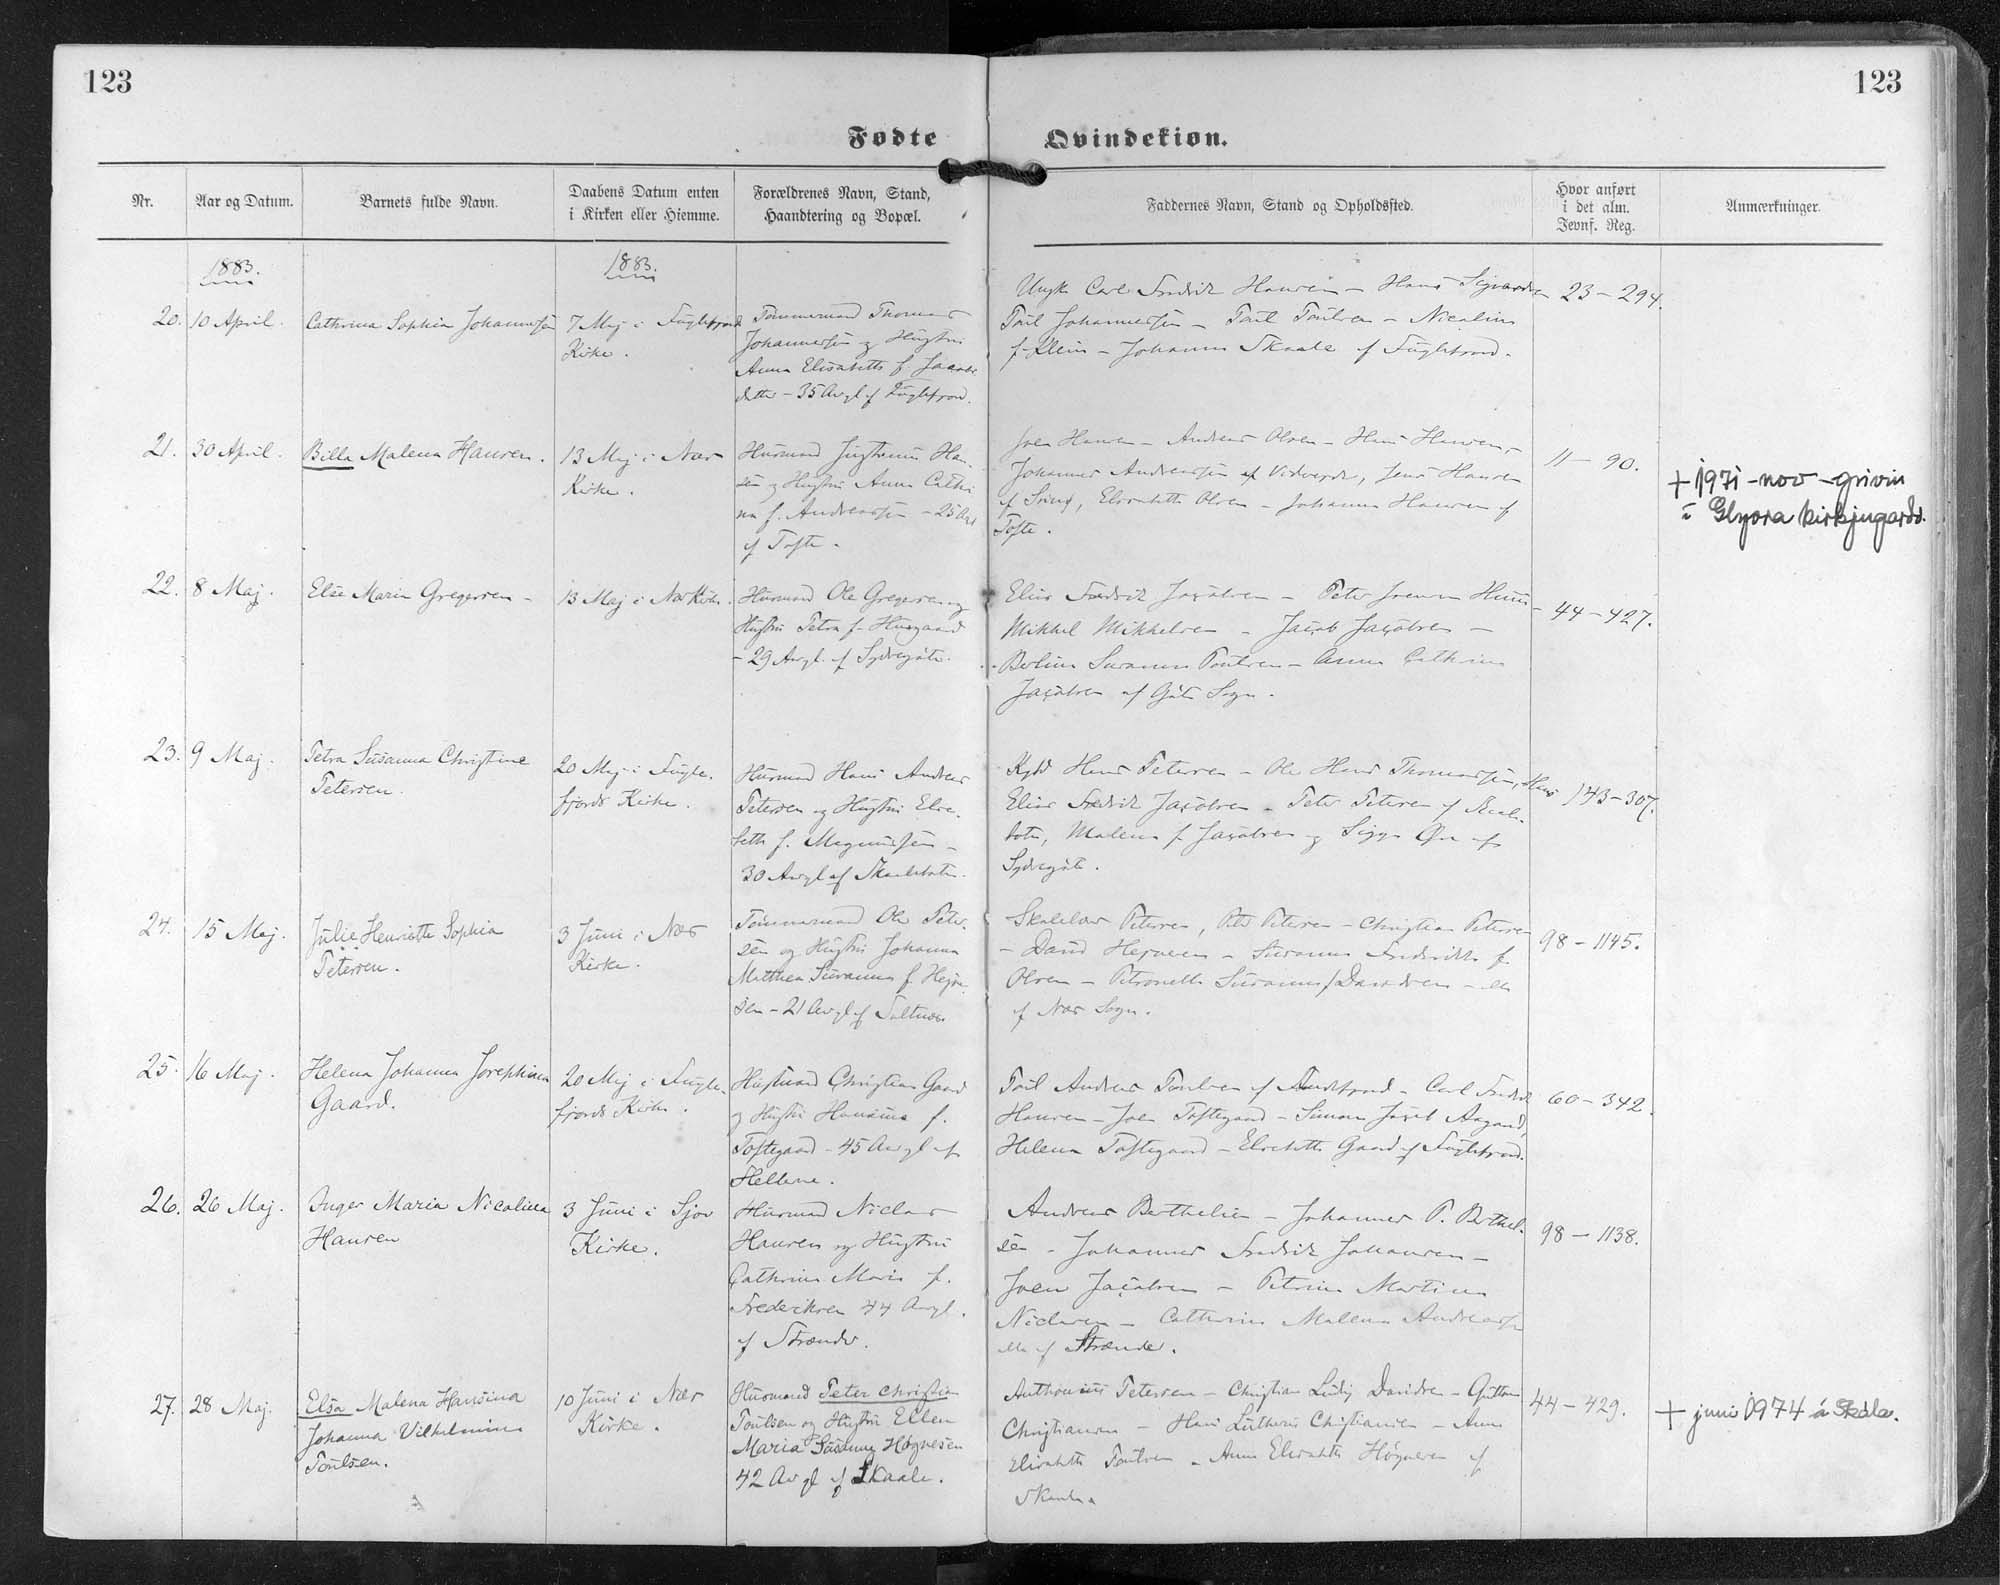 123
123
Fødte
Qvindekiøn.
Nr.
Aar og Datum.
Barnets fulde Navn.
Daabens Datum enten
i Kirken eller Hiemme.
Forældrenes Navn, Stand,
Haandtering og Bopæl.
Faddernes Navn, Stand og Opholdssted.
Hvor anført
i det alm.
Jevnf. Reg.
Anmærkninger.
1883.
1883.
20. 10 April.
Cathrina Sophia Johannesen
7 Maj i Fuglefjord
Kirke.
Tømmermand Thomas
Johannesen og Hustru
Anna Elisabeth f. Jacobs
datter - 35 Aar gl af Fuglefjord.
Carl Fredrik Hansen - Hans
Poul Johannesen - Poul Poulsen -
Johanna Skaale af Fuglefjord.
23 - 294.
21. 30 April.
Billa Malena Hansen.
13 Maj i Næs
Kirke.
Husmand Han-
sen og Hustru Anna Cathri
na f. Andreasen - 25 Aar
af Tofte.
Joen Hansen - Andreas Olsen - Hans Hansen,
Johannes Andreasen af , Jens Hansen
af , Elisabeth Olsen - Johanna Hansen af
Tofte.
11 - 90.
+ 1971 - nov - grivin
í Glyvra kirkjugarð.
22. 8 Maj.
Else Maria Gregersen -
13 Maj i Næs Kirke.
Husmand Ole Gregersen og
Hustru Petra f.
- 29 Aar gl. af Sydregøte.
Elias Fredrik Jacobsen - Peter Joensen
Mikkel Mikkelsen - Jacob Jacobsen -
Susanna Poulsen - Anna Cathrina
Jacobsen af Gøte Sogn.
44 - 427.
23. 9 Maj.
Petra Susanna Christine
Petersen.
20 Maj i Fugle-
fjords Kirke.
Husmand Hans Andreas
Petersen og Hustru Else-
beth f. Magnussen -
30 Aar gl af Skaalebotn.
Hans Petersen - Ole Hans Thomassen, Hans
Elias Fredrik Jacobsen - Peter Petersen af Skaale-
botn, Malena f. Jacobsen og af
Sydregøte.
143 - 307.
24. 15 Maj.
Julie Henriette Sophia
Petersen.
3 Juni i Næs
Kirke.
Tømmermand Ole Peter-
sen og Hustru Johanna
Matthea Susanna f.
sen - 21 Aar gl af Saltnæs
Skolelær Petersen, Peter Petersen - Christian Petersen
- David - Susanna Frederikke f.
Olsen - Petronella Susanna Davidsen - alle
af Næs Sogn.
98 - 1145.
25. 16 Maj.
Helena Johanna Josephina
Gaard.
20 Maj i Fugle-
fjords Kirke.
Husmand Christian Gaard
og Hustru Hansina f.
Toftegaard - 45 Aar gl af
Hellene.
Poul Andreas Poulsen af - Carl Fredrik
Hansen - Joen Toftegaard - Simon Jacob
Helena Toftegaard - Elsebeth Gaard af Fuglefjord.
60 - 342.
26. 26 Maj.
Inger Maria Nicolina
Hansen
3 Juni i Sjov
Kirke.
Husmand Niclas
Hansen og Hustru
Cathrina Maria f.
Frederiksen 44 Aar gl.
af Strænder.
Andreas Berthelsen - Johannes P. Berthel-
sen - Johannes Fredrik Johansen -
Joen Jacobsen - Petrine Martine
Niclasen - Cathrina Malena Andreasen
alle af Strænder.
98 - 1138.
27. 28 Maj.
Elsa Malena Hansina
Johanna Vilhelmina
Poulsen.
10 Juni i Næs
Kirke.
Husmand Peter Christian
Poulsen og Hustru Ellen
Maria Susanna Høgnesen
42 Aar gl af Skaale.
Anthonius Petersen - Christian Davidsen -
Christiansen - Hans Lutherus Christiansen - Anna
Elisabeth Poulsen - Anna Elisabeth Høgnesen af
Skaale.
44 - 429.
+ juni 1974 á Skála.